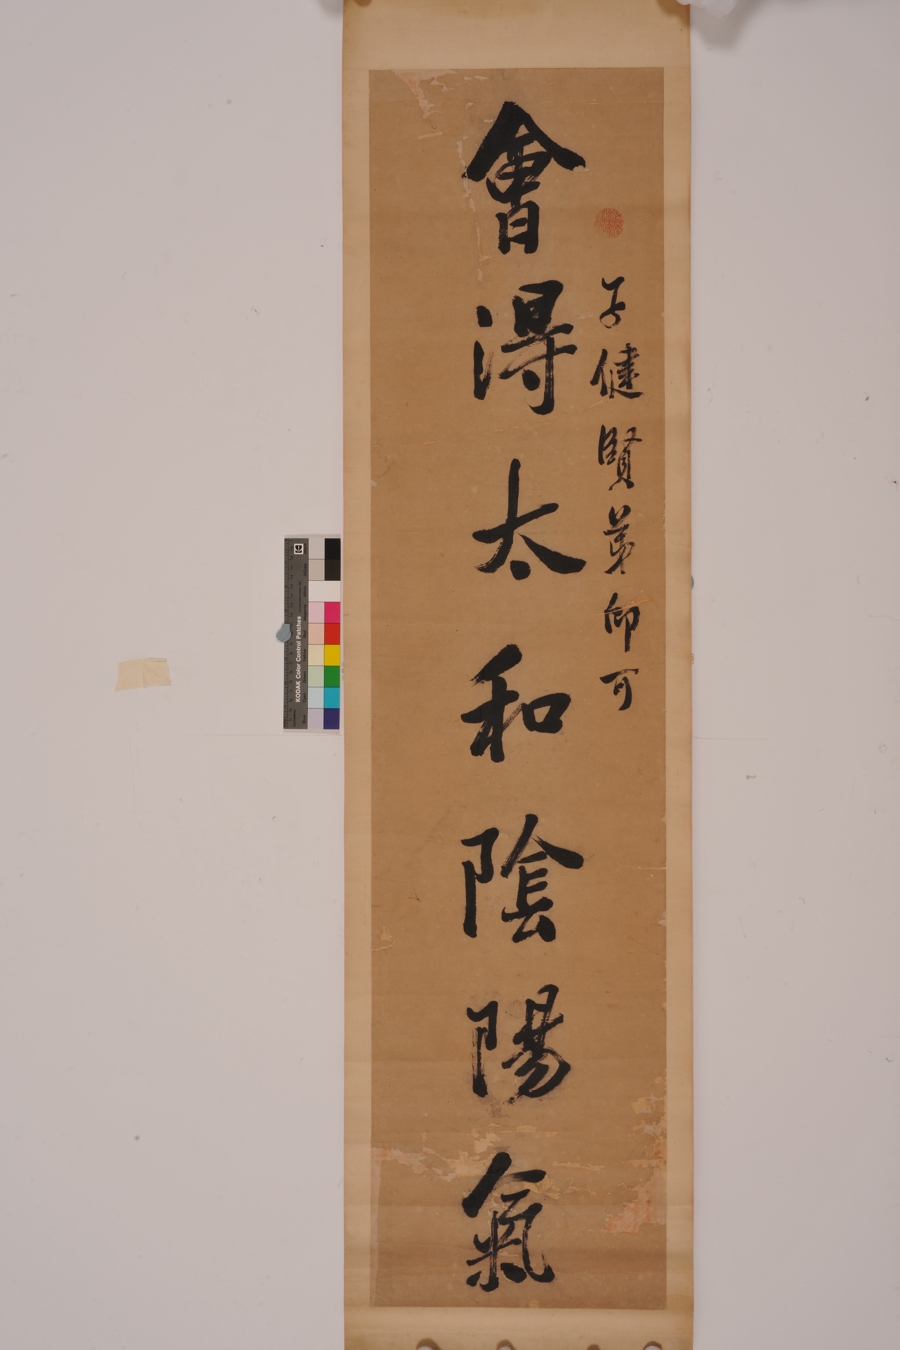 子健賢弟印可
會得太和陰陽氣
KODAK Color Control Patches